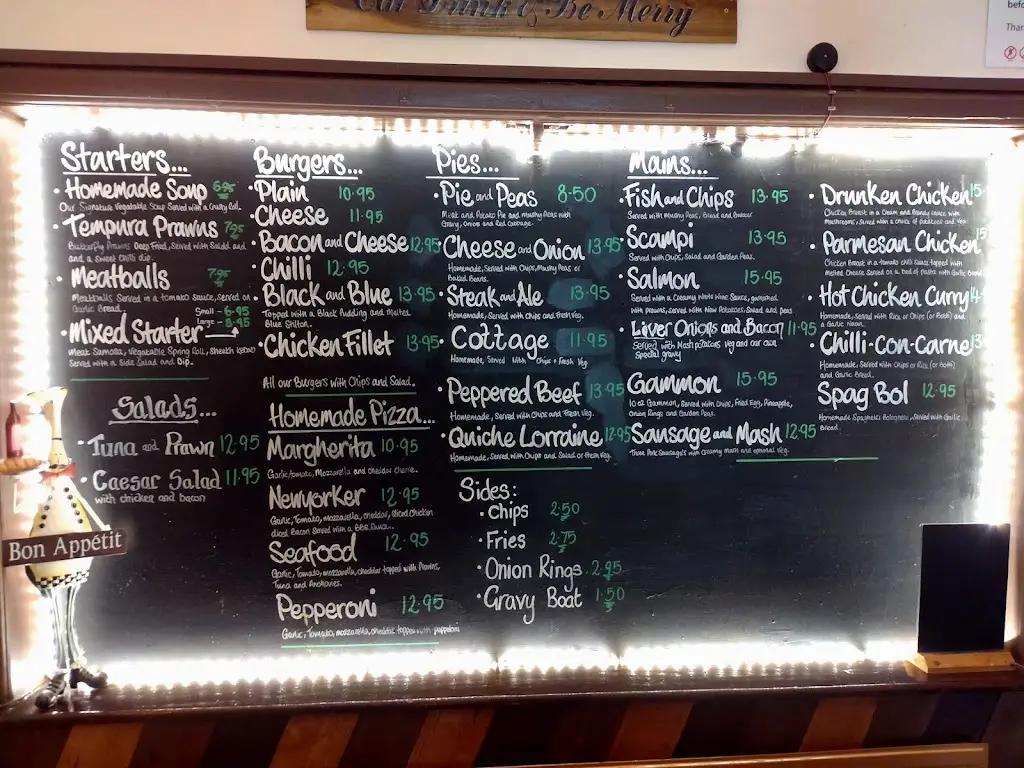 Eat Drink & Be Merry
Starters...
Homemade Soup 6.95
Our Signature Vegetable Soup Served with a Crusty Roll.
Tempura Prawns 7.95
Butterfly Prawns Deep Fried, Served with Salad and
and a sweet chilli dip.
Meatballs 7.95
Meatballs Served in a tomato sauce, served on
Garlic Bread.
Small - 6.95
Large - 8.95
Mixed Starter
Meat Samosa, Vegetable Spring Roll, Sheekh Kebab
Served with a Side Salad and Dip.
Salads...
Tuna and Prawn 12.95
Caesar Salad 11.95
with chicken and bacon
Bon Appétit
Burgers...
Plain 10.95
Cheese 11.95
Bacon and Cheese 12.95
Chilli 12.95
Black and Blue 13.95
Topped with a Black Pudding and Melted
Blue Stilton.
Chicken Fillet 13.95
All our Burgers with Chips and Salad.
Homemade Pizza...
Margherita 10.95
Garlic, tomato, Mozzarella and cheddar cheese.
Newyorker 12.95
Garlic, Tomato, mozzarella, cheddar, sliced chicken
diced Bacon Served with a BBQ Sauce.
Seafood 12.95
Garlic, Tomato, mozzarella, cheddar topped with Prawns,
Tuna and Anchovies.
Pepperoni 12.95
Garlic, Tomato, mozzarella, cheddar topped with pepperoni
Pies...
Pie and Peas 8.50
Meat and Potato Pie and Mushy Peas with
Gravy, Onions and Red Cabbage.
Cheese and Onion 13.95
Homemade, Served with Chips, Mushy Peas or
Baked Beans.
Steak and Ale 13.95
Homemade, Served with Chips and Fresh Veg.
Cottage 11.95
Homemade, Served with Chips + Fresh Veg.
Peppered Beef 13.95
Homemade, Served with Chips and Fresh Veg.
Quiche Lorraine 12.95
Homemade, Served with Chips and Salad or Fresh Veg.
Sides:
Chips 2.50
Fries 2.75
Onion Rings 2.95
Gravy Boat 1.50
Mains...
Fish and Chips 13.95
Served with Mushy Peas, Bread and Butter
Scampi 13.95
Served with Chips, Salad and Garden Peas.
Salmon 15.95
Served with a Creamy White Wine Sauce, garnished
with prawns, served with New Potatoes, Salad and Peas
Liver Onions and Bacon 11.95
Served with Mash potatoes veg and our own
Special gravy
Gammon 15.95
10oz Gammon, Served with Chips, Fried Egg, Pineapple,
Onion Rings and Garden Peas.
Sausage and Mash 12.95
Three Pork Sausage's with Creamy Mash and optional veg.
Drunken Chicken 15
Chicken Breast in a Cream and Brandy sauce with
Mushrooms, served with a choice of potatoes and Veg.
Parmesan Chicken 15
Chicken Breast in a tomato chilli sauce topped with
Melted Cheese Served on a bed of pasta with Garlic Bread
Hot Chicken Curry 14
Homemade, Served with Rice or Chips (or Both) and
a Garlic Naan.
Chilli-Con-Carne 13
Homemade, Served with Chips or Rice (or both)
and Garlic Bread.
Spag Bol 12.95
Homemade Spaghetti Bolognese, Served with Garlic
Bread.
befo
Than